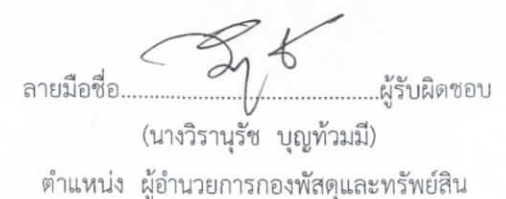 ลายมือชื่อ.............................................ผู้รับผิดชอบ
(นางวิรานุรัช บุญท้วมมี)
ตำแหน่ง ผู้อำนวยการกองพัสดุและทรัพย์สิน